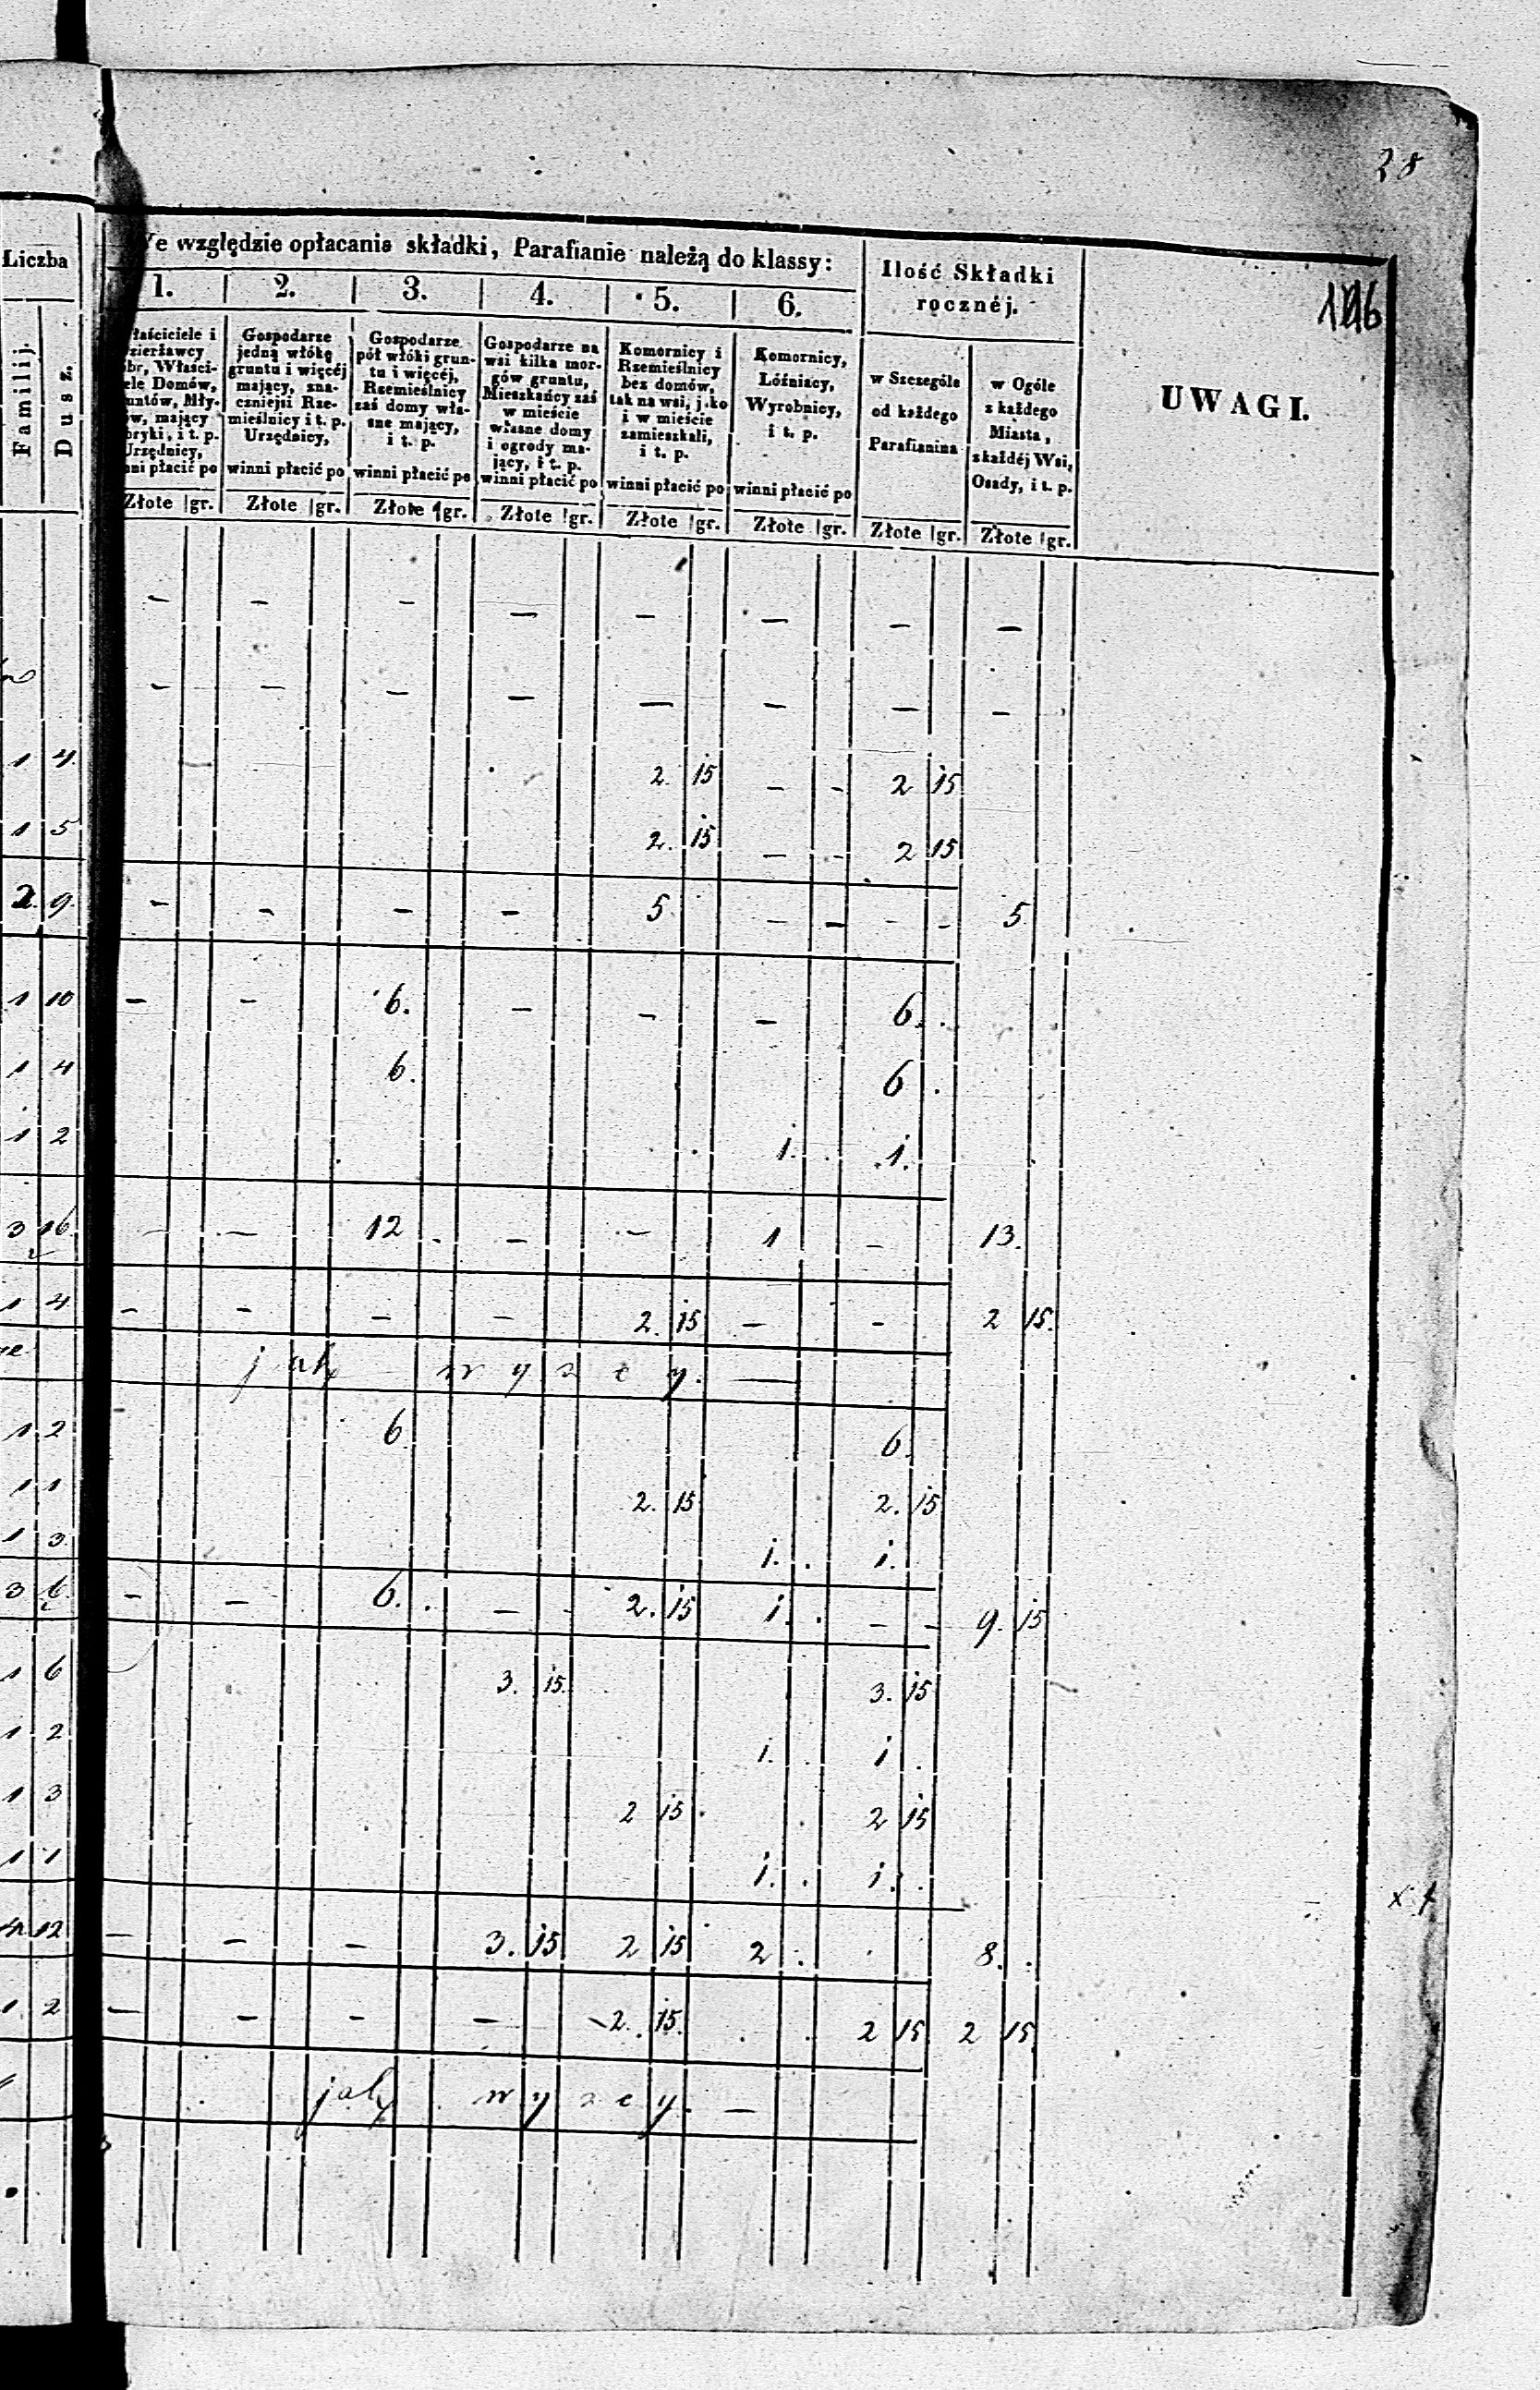 28
Liczba
We względzie opłacania składki, Parafianie należą do klassy:
Ilość Składki rocznéj.
UWAGI.
Familij.
Dusz.
1. 2. 3. 4. 5. 6.
łaściciele i
zierżawcy
óbr, Właści-
ele Domów,
untów, Mły-
ów, mający
bryki, i t. p.
Urzędnicy,
nni płacić po
Gospodarze
jedną włókę
gruntu i więcéj
mający, zna-
czniejsi Rze-
mieślnicy i t. p.
Urzędnicy,
winni płacić po
Gospodarze
pół włóki grun-
tu i więcéj,
Rzemieślnicy
zaś domy wła-
sne mający,
i t. p.
winni płacić po
Gospodarze na
wsi kilka mor-
gów gruntu,
Mieszkańcy zaś
w mieście
własne domy
i ogrody ma-
jący, i t. p.
winni płacić po
Komornicy i
Rzemieślnicy
bez domów,
tak na wsi, jako
i w mieście
zamieszkali,
i t. p.
winni płacić po
Komornicy,
Lóźniacy,
Wyrobnicy,
i t. p.
winni płacić po
w Szczególe
od każdego
Parafianina
w Ogóle
z każdego
Miasta,
z każdéj Wsi,
Osady, i t. p.
Złote gr. Złote gr. Złote gr. Złote gr. Złote gr. Złote gr. Złote gr. Złote gr.
– – – – – – – –
– – – – – – – –
1 4. 2. 15 – – 2 15
1 5 2. 15 – – 2 15
2. 9. – – – – 5. – – – – 5
1 10 – – 6. – – – 6.
1 4 6. 6.
1 2 1. 1.
3 16. – – 12 . – – 1 – 13.
1 4 – – – – 2. 15 – – 2 15.
jak wyzey. —
1 2 6. 6.
1 1 2. 15 2. 15
1 3. 1. . 1.
3 6. – – 6. . – – 2. 15 1. . – – 9. 15
1 6 3. 15. 3. 15
1 2 1. . 1 .
1 3 2 15. 2 15
1 1 1. . 1. .
4. 12 – – – 3. 15 2 15 2 . 8. .
1 2 – – – – 2. 15. . . 2 15 2 15
jak wyzey. —